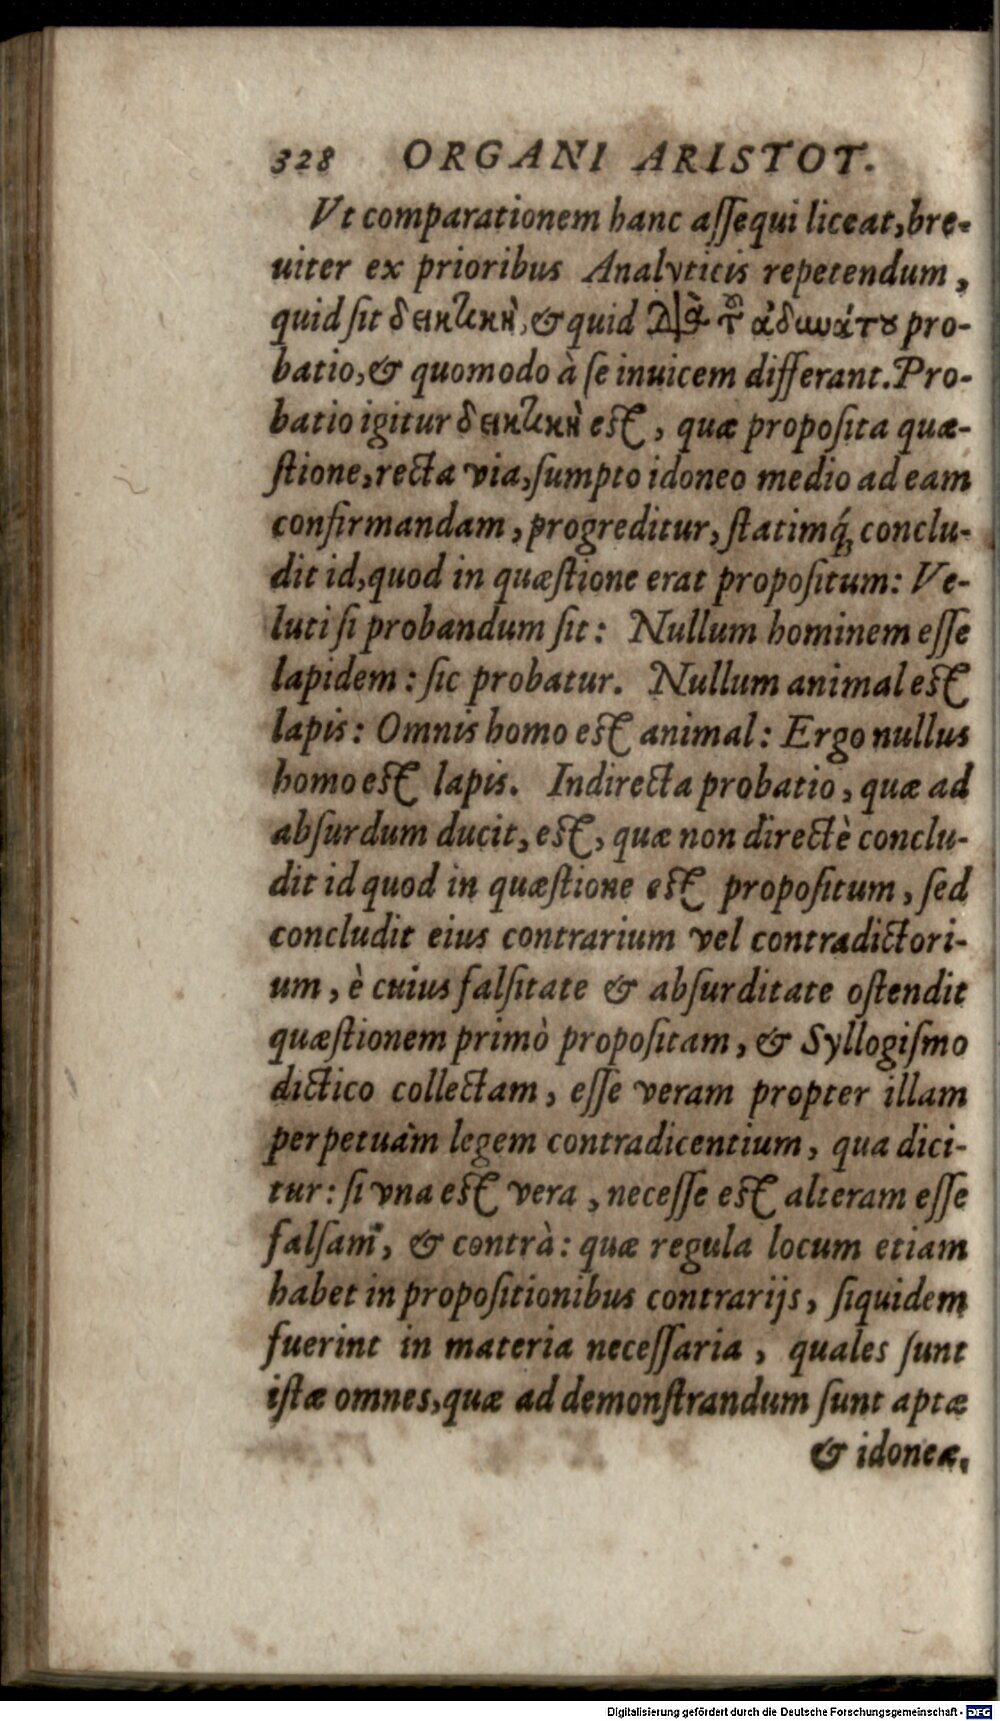 328 ORGANI ARISTOT.
Vt comparationem hanc aſſequi liceat, bre-
uiter ex prioribus Analyticis repetendum,
quid ſit δεικτικὴ, & quid διὰ τ̃ ἀδυνάτου pro-
batio, & quomodo à ſe inuicem differant. Pro-
batio igitur δεικτικὴ eſt, quæ propoſita quæ-
ſtione, recta via, ſumpto idoneo medio ad eam
confirmandam, progreditur, ſtatimq́; conclu-
dit id, quod in quæſtione erat propoſitum: Ve-
luti ſi probandum ſit: Nullum hominem eſſe
lapidem: ſic probatur. Nullum animal eſt
lapis: Omnis homo eſt animal: Ergo nullus
homo eſt lapis. Indirecta probatio, quæ ad
abſurdum ducit, eſt, quæ non directè conclu-
dit id quod in quæſtione eſt propoſitum, ſed
concludit eius contrarium vel contradictori-
um, è cuius falſitate & abſurditate oſtendit
quæſtionem primò propoſitam, & Syllogiſmo
dictico collectam, eſſe veram propter illam
perpetuàm legem contradicentium, qua dici-
tur: ſi vna eſt vera, neceſſe eſt alteram eſſe
falſam, & contrà: quæ regula locum etiam
habet in propoſitionibus contrarijs, ſiquidem
fuerint in materia neceſſaria, quales ſunt
iſtæ omnes, quæ ad demonſtrandum ſunt aptæ
& idoneæ.
Digitalisierung gefördert durch die Deutsche Forschungsgemeinschaft - DFG